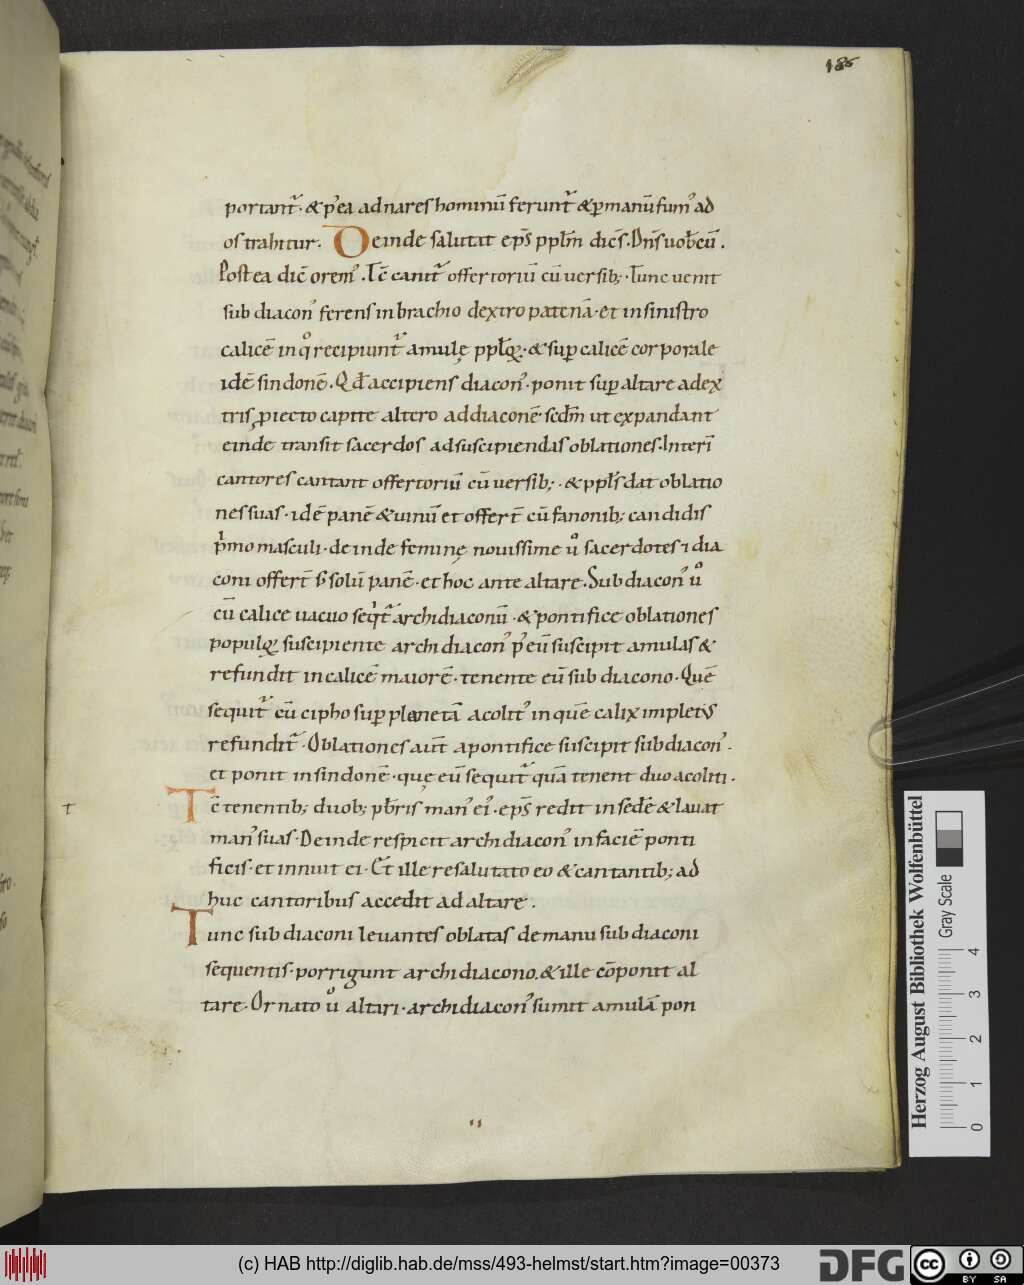 186
portant᷑· & p᷒ ea ad nares hominū ferunt᷑ & ꝑ manū fum᷒ ad
os trahitur· Deinde salutat ep̄s ppl̄m dic̄s· Dn̄s uob̄cū.
Postea dic̄ orem᷒· Tc̄ cant᷑ offertoriū cū uersib; · Tunc uenit
sub diacon᷒ ferens in brachio dextro patenā· et in sinistro
calicē in qͦ recipiunt᷑ amulę ppl̄oꝝ· & suꝑ calicē corporale
idē sindonē· Qd̄ accipiens diacon᷒· ponit suꝑ altare a dex
tris, ꝓiecto capite altero ad diaconē scd̄m ut expandant
einde transit sacerdos ad suscipiendas oblationes· Interī
cantores cantant offertoriū cū uersib; · & ppl̄s dat oblatio
nes suas· idē panē & uinū et offert̄ cū fanonib; candidis
pͥmo masculi· deinde feminę nouissime ůͦ sacerdotes ⁊ dia
coni offert̄ s; solū panē· et hoc ante altare. Sub diacon᷒ ůͦ
cū calice uacuo seqͥt᷑ archidiaconū· & pontifice oblationes
populoꝝ suscipiente archi diacon᷒ p᷒ eū suscipit amulas &
refundit in calicē maiorē· tenente eū sub diacono· Quē
sequit᷑ cū cipho suꝑ planetā acolit᷒ in quē calix impletus
refundit᷑· Oblationes aūt a pontifice suscipit sub diacon᷒.
et ponit in sindonē· quę eū sequit᷑ quā tenent duo acoliti.
t
Tc̄ tenentib; duob; pb̄ris man᷒ ei᷒· ep̄s redit in sedē & lauat
man᷒ suas· Deinde respicit archi diacon᷒ in faciē ponti
ficis· et innuit ei· Et ille resalutato eo & cantantib; ad
huc cantoribus accedit ad altare.
Tunc sub diaconi leuantes oblatas de manu sub diaconi
sequentis· porrigunt archi diacono. & ille cōponit al
tare· Ornato ůͦ altari· archidiacon᷒ sumit amulā pon
Herzog August Bibliothek Wolfenbüttel
Gray Scale
0 1 2 3 4
(c) HAB http://diglib.hab.de/mss/493-helmst/start.htm?image=00373
DFG
cc BY SA